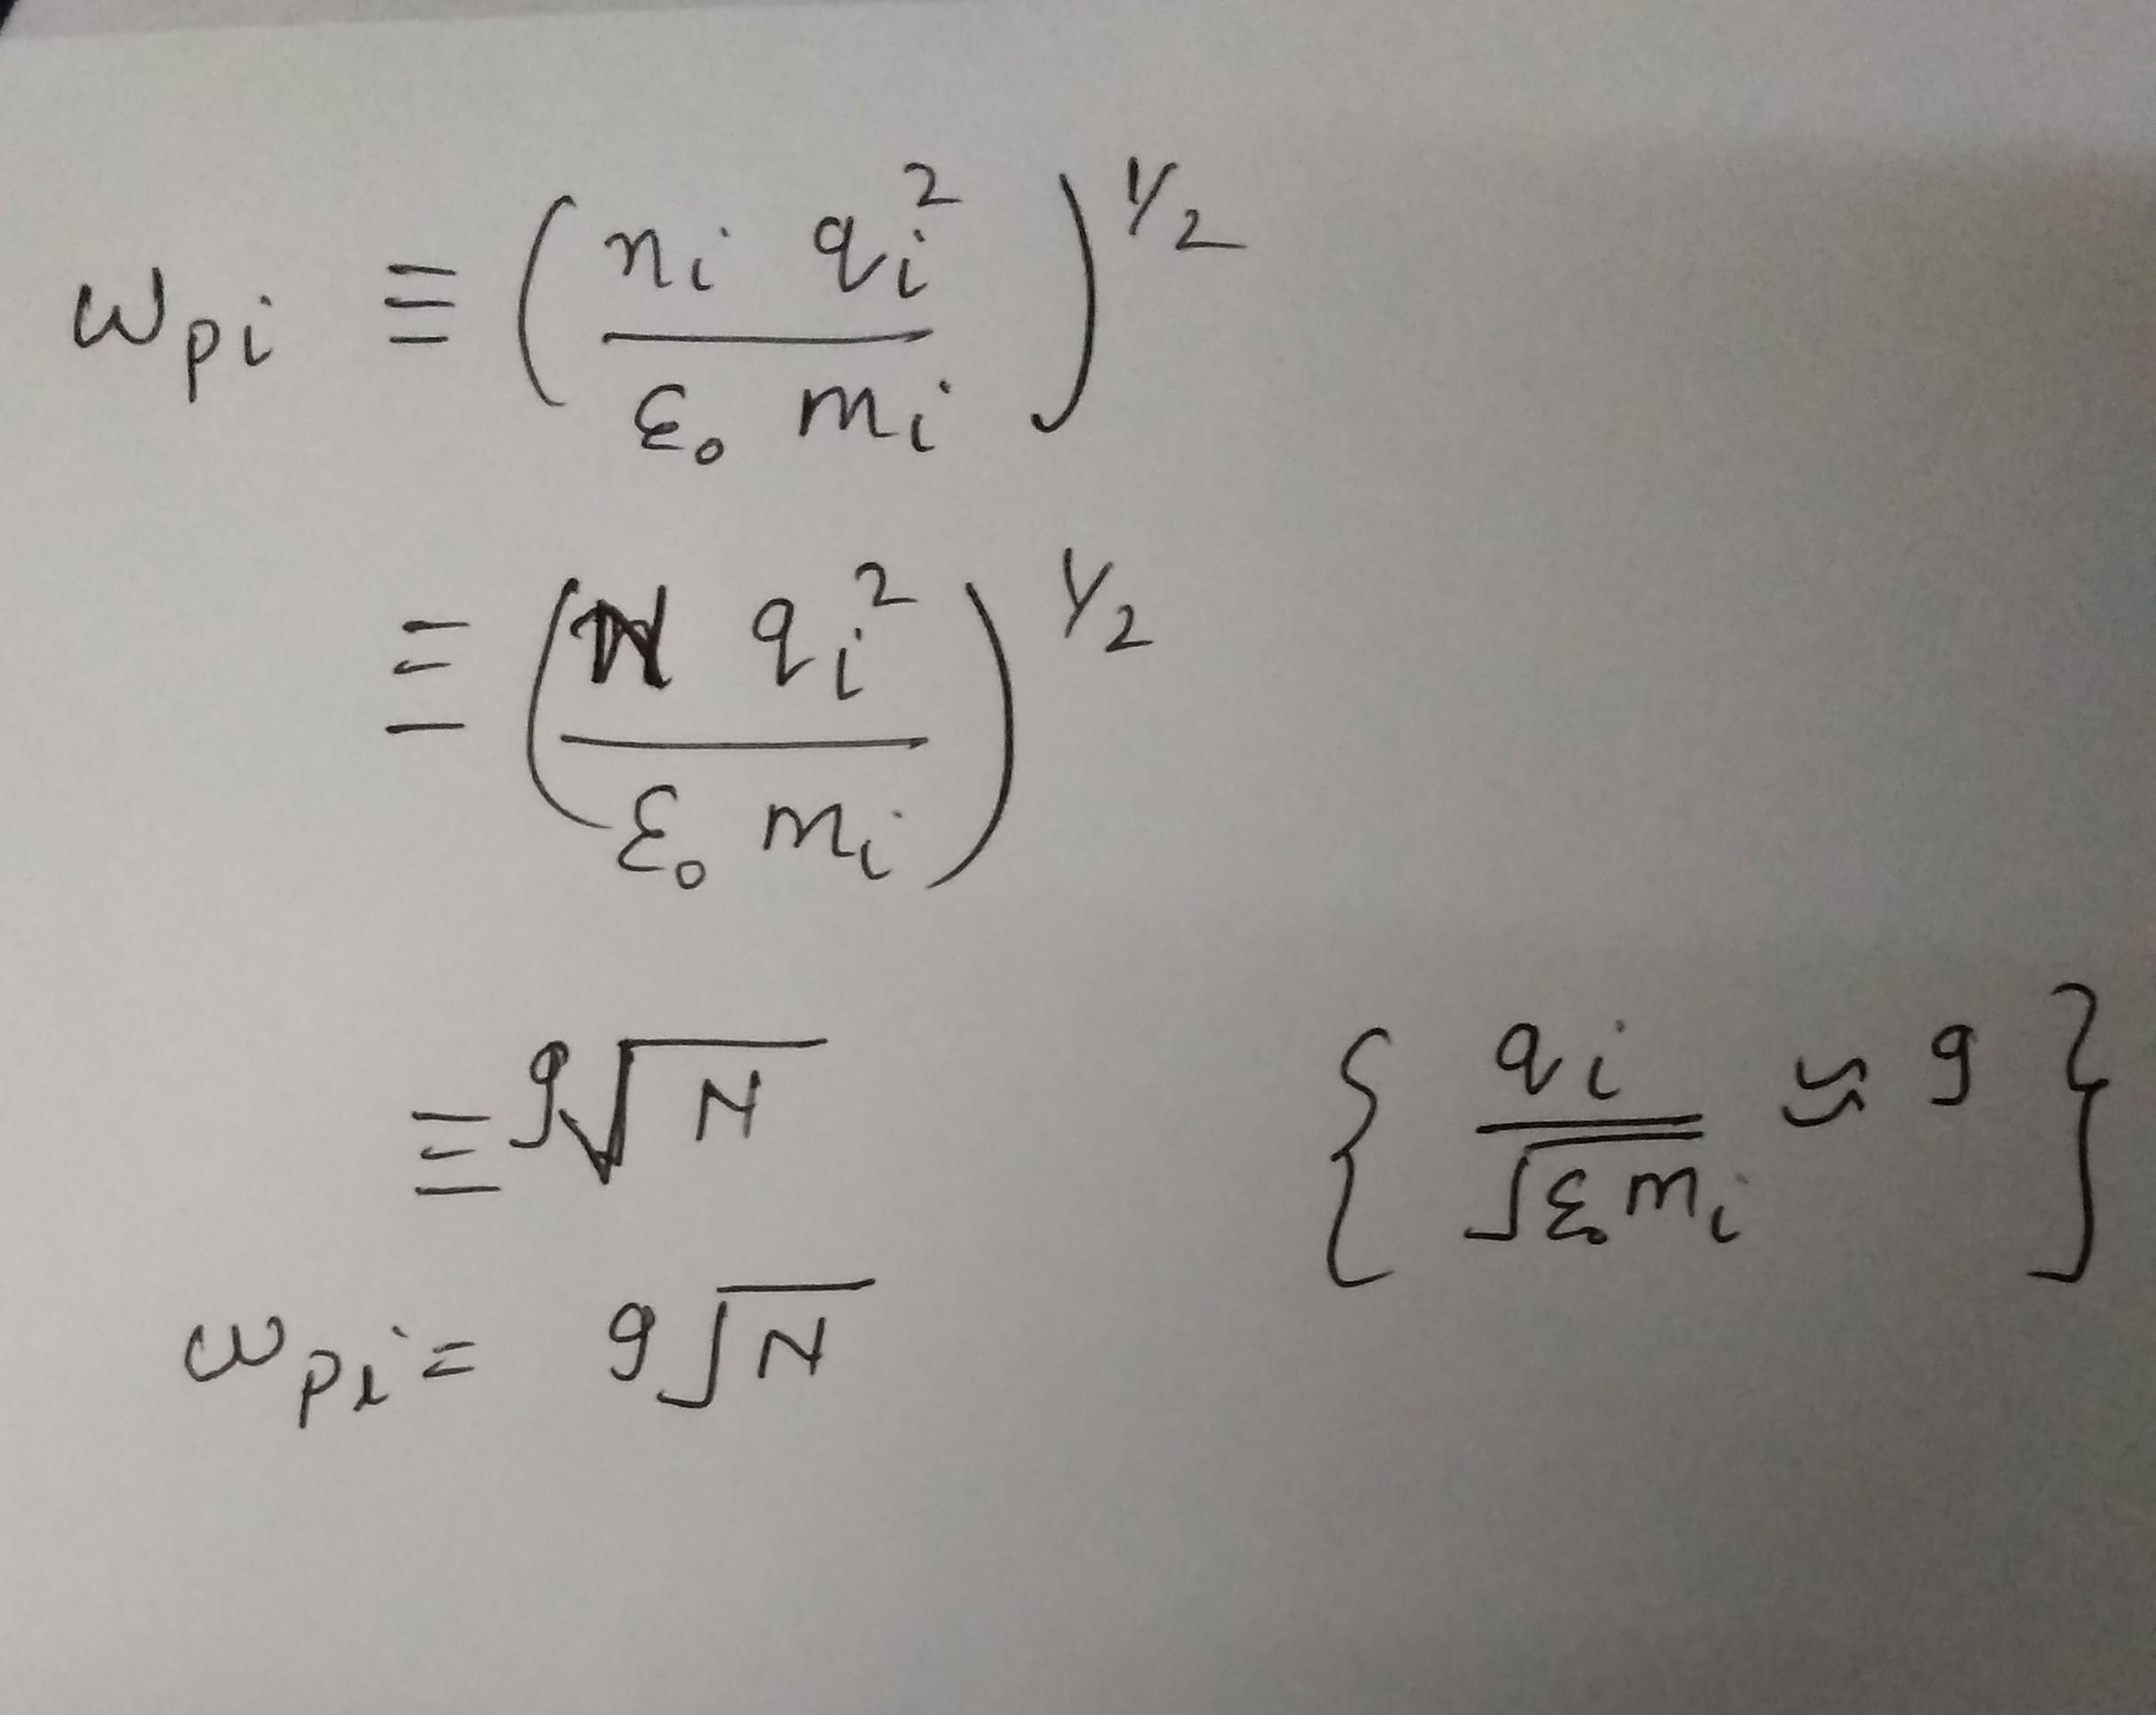 ω_pi ≡ (n_i q_i² / ε₀ m_i)^1/2
≡ (N q_i² / ε₀ m_i)^1/2
≡ 9√N { q_i / √ε₀ m_i ≈ 9 }
ω_pi = 9√N